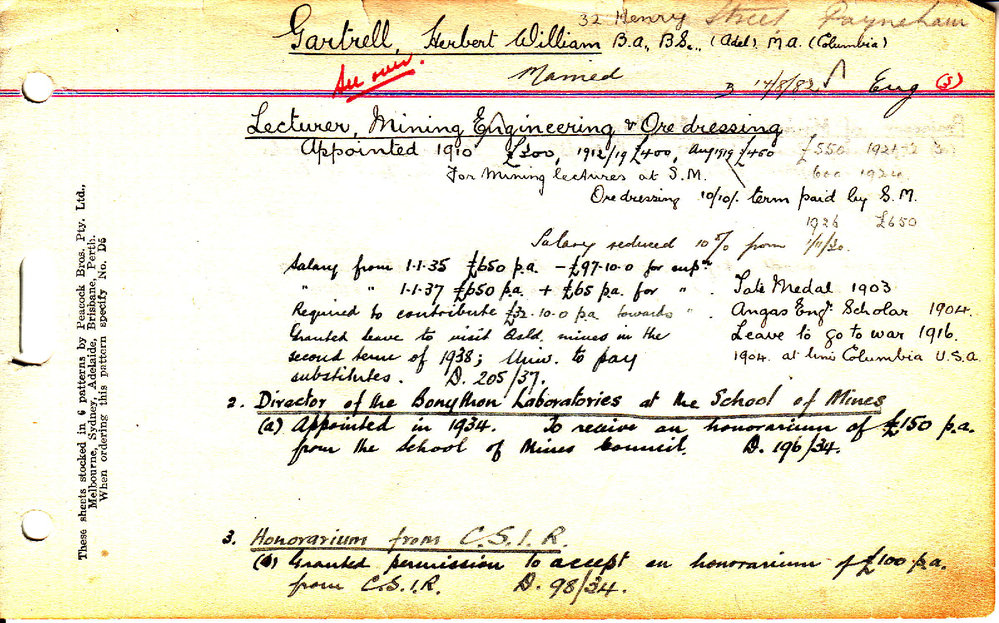 32 Henry Street Payneham
Gartrell, Herbert William B.A., B.Sc., (Adel). M.A. (Columbia)
See over.
Married
B 17/8/82 Eng (3)
Lecturer, Mining Engineering & Ore dressing
Appointed 1910 £300, 1912/19 £400, Aug 1919 £450 £550 1921
For Mining lectures at S.M. 600 1924
Ore dressing 10/10/- term paid by S.M.
1926 £650
Salary reduced 10% from 1/11/30.
Salary from 1.1.35 £650 p.a. - £97.10.0 for supn
" " 1.1.37 £650 p.a. + £65 p.a. for " . Tate Medal 1903
Required to contribute £32.10.0 p.a. towards " . Angas Eng. Scholar 1904.
Granted leave to visit Aald. mines in the Leave to go to war 1916.
second term of 1938; Univ. to pay 1904. at Univ Columbia U.S.A.
substitutes. D. 205/37.
2. Director of the Bonython Laboratories at the School of Mines
(a) Appointed in 1934. To receive an honorarium of £150 p.a.
from the School of Mines Council. D. 196/34.
3. Honorarium from C.S.I.R.
(a) Granted permission to accept an honorarium of £100 p.a.
from C.S.I.R. D. 98/34.
These sheets stocked in 6 patterns by Peacock Bros. Pty. Ltd.,
Melbourne, Sydney, Adelaide, Brisbane, Perth.
When ordering this pattern specify No. D6